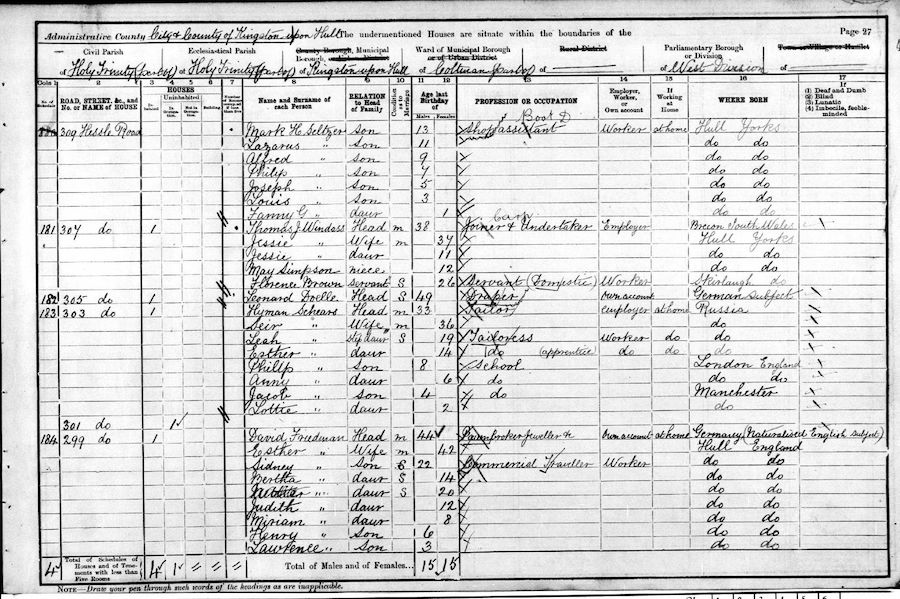 Administrative County City & County of Kingston upon Hull The undermentioned Houses are situate within the boundaries of the Page 27
Civil Parish Ecclesiastical Parish County Borough, Municipal Borough, Ward of Municipal Borough or of Urban District Rural District Parliamentary Borough or Division Town or Village or Hamlet
of Holy Trinity (part of) of Holy Trinity (part of) of Kingston upon Hull of Coltman (part of) of of West Division of
Cols 1 2 3 4 5 6 7 8 9 10 11 12 13 14 15 16 17
ROAD, STREET, &c., and No. or NAME of HOUSE HOUSES Uninhabited Name and Surname of each Person RELATION to Head of Family Age last Birthday of Males Females PROFESSION OR OCCUPATION Employer, Worker, or Own account If Working at Home WHERE BORN If (1) Deaf and Dumb (2) Blind (3) Lunatic (4) Imbecile, feeble-minded
309 Hessle Road Mark H. Seltzer son 13 Shop assistant Boot D Worker at home Hull Yorks
Lazarus " son 11 do do
Alfred " son 9 do do
Philip " son 7 do do
Joseph " son 5 do do
Louis " son 3 do do
Fanny G " daur 1 do do
181 307 do 1 Thomas J. Windass Head m 38 Joiner & Undertaker Employer Brecon South Wales
Jessie " Wife m 37 Hull Yorks
Jessie " daur 11 do do
May Simpson niece 12 do do
Florence Brown servant S 26 Servant (Domestic) Worker Skirlaugh do
182 305 do 1 Leonard Doelle Head S 49 Draper own account German Subject
183 303 do 1 Hyman Schears Head m 33 Tailor employer at home Russia
" Wife m 36 do
Leah " step daur S 19 Tailoress Worker do do
Esther " daur 14 do (apprentice) do do do
Philip " son 8 School London England
Anny " daur 6 do do do
Jacob " son 4 do Manchester
Lottie " daur 2 do
301 do 1
184 299 do 1 David Friedman Head m 44 Pawnbroker Jeweller & own account at home Germany (Naturalised English subject)
Esther " Wife m 42 Hull England
Sidney " Son S 22 Commercial Traveller Worker do do
Bertha " daur S 14 do do
" daur S 20 do do
Judith " daur 12 do do
Miriam " daur 8 do do
Henry " Son 6 do do
Lawrence " Son 3 do do
4 Total of Schedules of Houses and of Tenements with less than Five Rooms 4 1 Total of Males and of Females... 15 15
NOTE—Draw your pen through such words of the headings as are inapplicable.